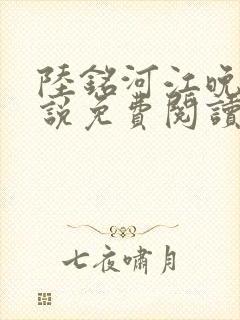 陸銘河江晚
說免費閱讀
七夜嘯月